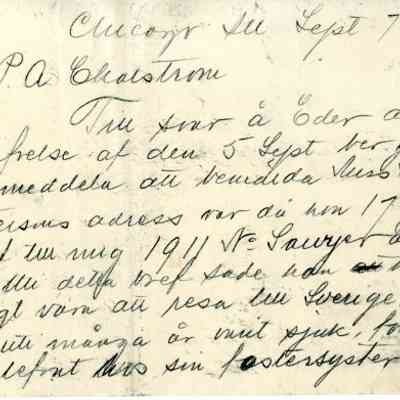 Chicago Ill Sept 7
P. A. Ekolstrom
Till svar å Eder
frelse af den 5 Sept ber
meddela att bemedda Miss
adress var då hon 17
till mig 1911 No Sawyer
detta bref sade hon
gt vara att resa till Sverige
uti många år varit sjuk, for
lefont hos sin fostersyster